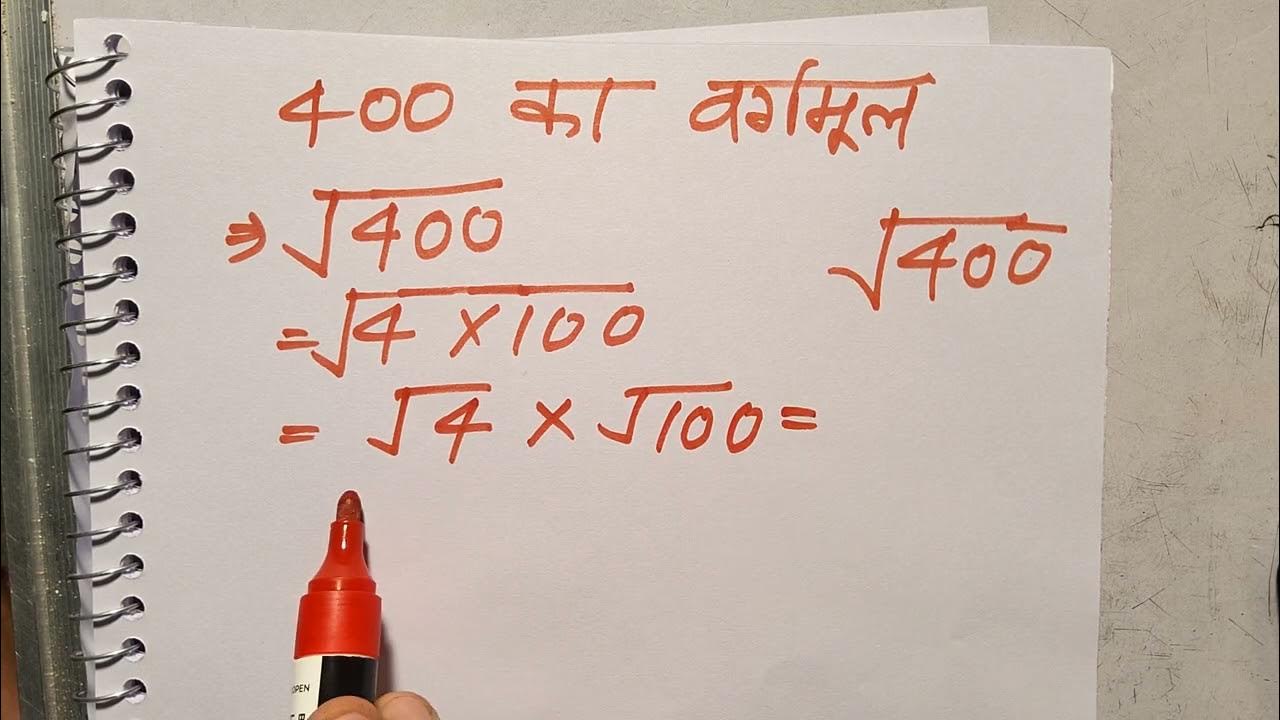 400 का वर्गमूल
⇒ √400
√400
= √4 × 100
= √4 × √100 =
OPEN